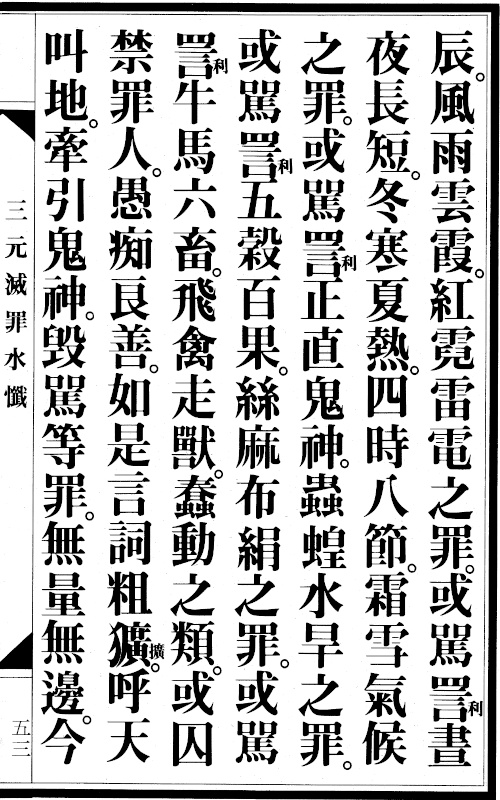 辰。風雨雲霞。紅霓雷電之罪。或罵詈利晝
夜長短。冬寒夏熱。四時八節。霜雪氣候
之罪。或罵詈利正直鬼神。蟲蝗水旱之罪。
或罵詈利五穀百果。絲麻布絹之罪。或罵
詈利牛馬六畜。飛禽走獸。蠢動之類。或囚
禁罪人。愚痴良善。如是言詞粗獷擴。呼天
叫地。牽引鬼神。毀罵等罪。無量無邊。今
三元滅罪水懺
五三